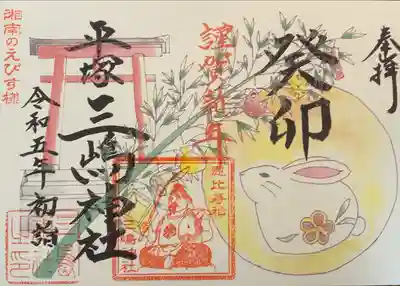 奉拝
癸卯
謹賀新年
平塚三嶋神社
令和五年 初詣
湘南のえびす様